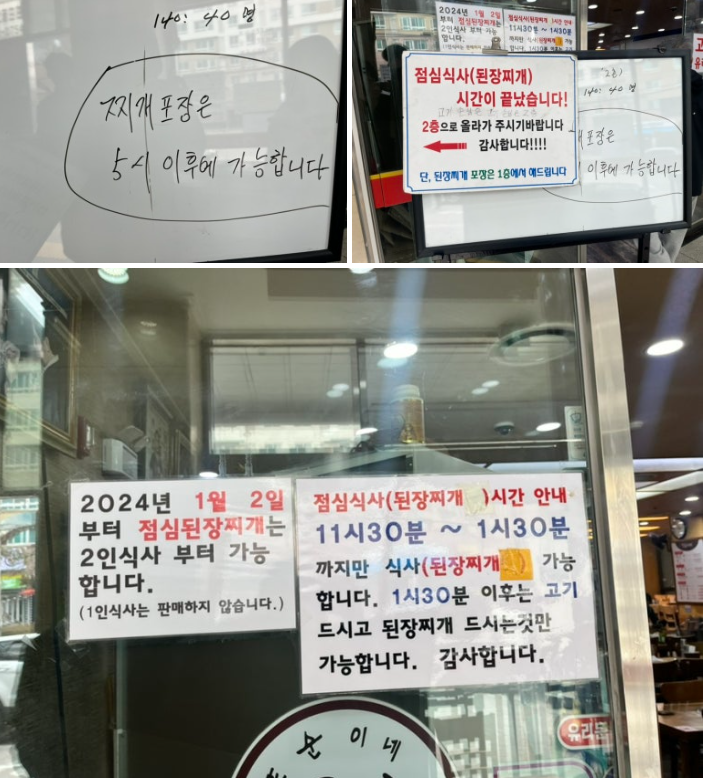 140: 40 명
찌개 포장은
5시 이후에 가능합니다
2024년 1월 2일
부터 점심된장찌개
2인식사 부터 가능
합니다.
점심식사(된장찌개 시간 안내
11시30분 ~ 1시30분
140: 40 명
점심식사(된장찌개)
시간이 끝났습니다!
2층으로 올라가 주시기바랍니다
감사합니다!!!!
단, 된장찌개 포장은 1층에서 해드립니다
포장은
이후에 가능합니다
2024년 1월 2일
부터 점심된장찌개는
2인식사 부터 가능
합니다.
(1인식사는 판매하지 않습니다.)
점심식사(된장찌개 )시간 안내
11시30분 ~ 1시30분
까지만 식사(된장찌개 ) 가능
합니다. 1시30분 이후는 고기
드시고 된장찌개 드시는것만
가능합니다. 감사합니다.
이네
유리